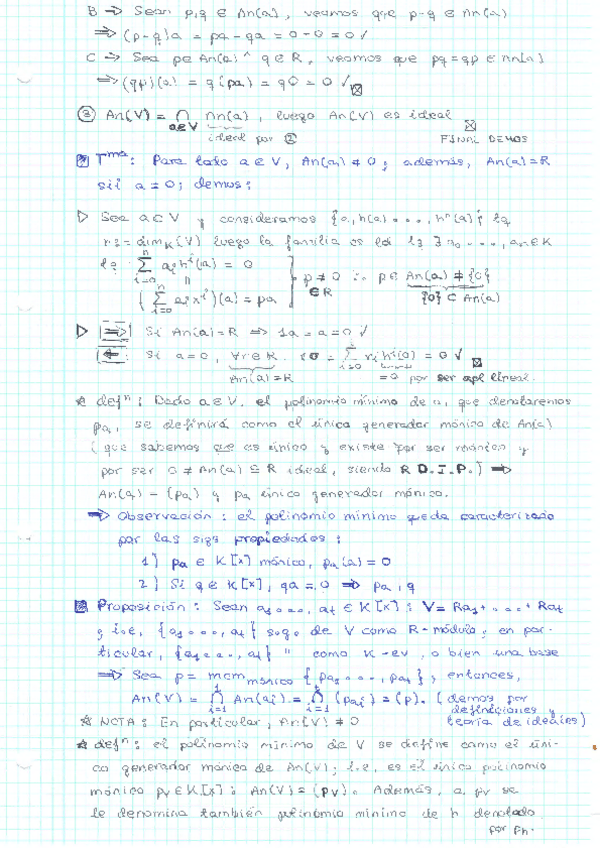 B → Sean p,q ∈ An(a), veamos que p-q ∈ An(a)
⇒ (p-q)a = pa - qa = 0-0 = 0 ✓
C → Sea p∈An(a) ^ q∈R, veamos que pq=qp ∈ An(a)
⇒ (qp)(a) = q(pa) = q0 = 0 ✓
③ An(V) = ∩ An(a), luego An(V) es ideal
a∈V
ideal por ②
FINAL DEMOS
Tma: Para todo a∈V, An(a) ≠ 0; además, An(a)=R
sii a=0; demos:
▷ Sea a∈V y consideramos {a,h(a),...,hⁿ(a)} tq
n:=dimK(V) luego la familia es ldi ∃ a₀,...,aₙ∈K
t: Σ aᵢhⁱ(a) = 0
(Σ aᵢxⁱ)(a) = pa
p≠0 ∴ p∈ An(a) ≠ {0}
∈R
{0} ⊂ An(a)
▷ ⇒ Si An(a)=R ⇒ 1a = a = 0 ✓
⇐ Si a=0, ∀r∈R. r0 = Σ rᵢhⁱ(0) = 0 ✓
An(a)=R
=0 por ser apl lineal.
* defⁿ: Dado a∈V, el polinomio mínimo de a, que denotaremos
pa, se definirá como el único generador mónico de An(a)
(que sabemos que es único y existe por ser mónico y
por ser 0 ≠ An(a) ⊆ R ideal, siendo R D.I.P.) ⇒
An(a) = (pa) y pa único generador mónico.
⇒ Observación: el polinomio mínimo queda caracterizado
por las sigs propiedades:
1) pa ∈ K[x] mónico, pa(a) = 0
2) Si q∈ K[x], qa = 0 ⇒ pa | q
Proposición: Sean a₁,...,at ∈ K[x] : V = Ra₁+...+Rat
; i.e, {a₁,...,at} sisgo de V como R-módulo; en par-
ticular, {a₁,...,at} " como K-ev, o bien una base
⇒ Sea p = mcm mónico {pa₁,...,pat}, entonces,
An(V) = ∩ An(aᵢ) = ∩ (paᵢ) = (p). (demos por
definiciones y
teoría de ideales)
* NOTA: En particular, An(V) ≠ 0
* defⁿ: el polinomio mínimo de V se define como el úni-
co generador mónico de An(V); i.e, es el único polinomio
mónico pv∈K[x] : An(V) = (pv). Además, a pv se
le denomina también polinomio mínimo de h denotado
por ph.